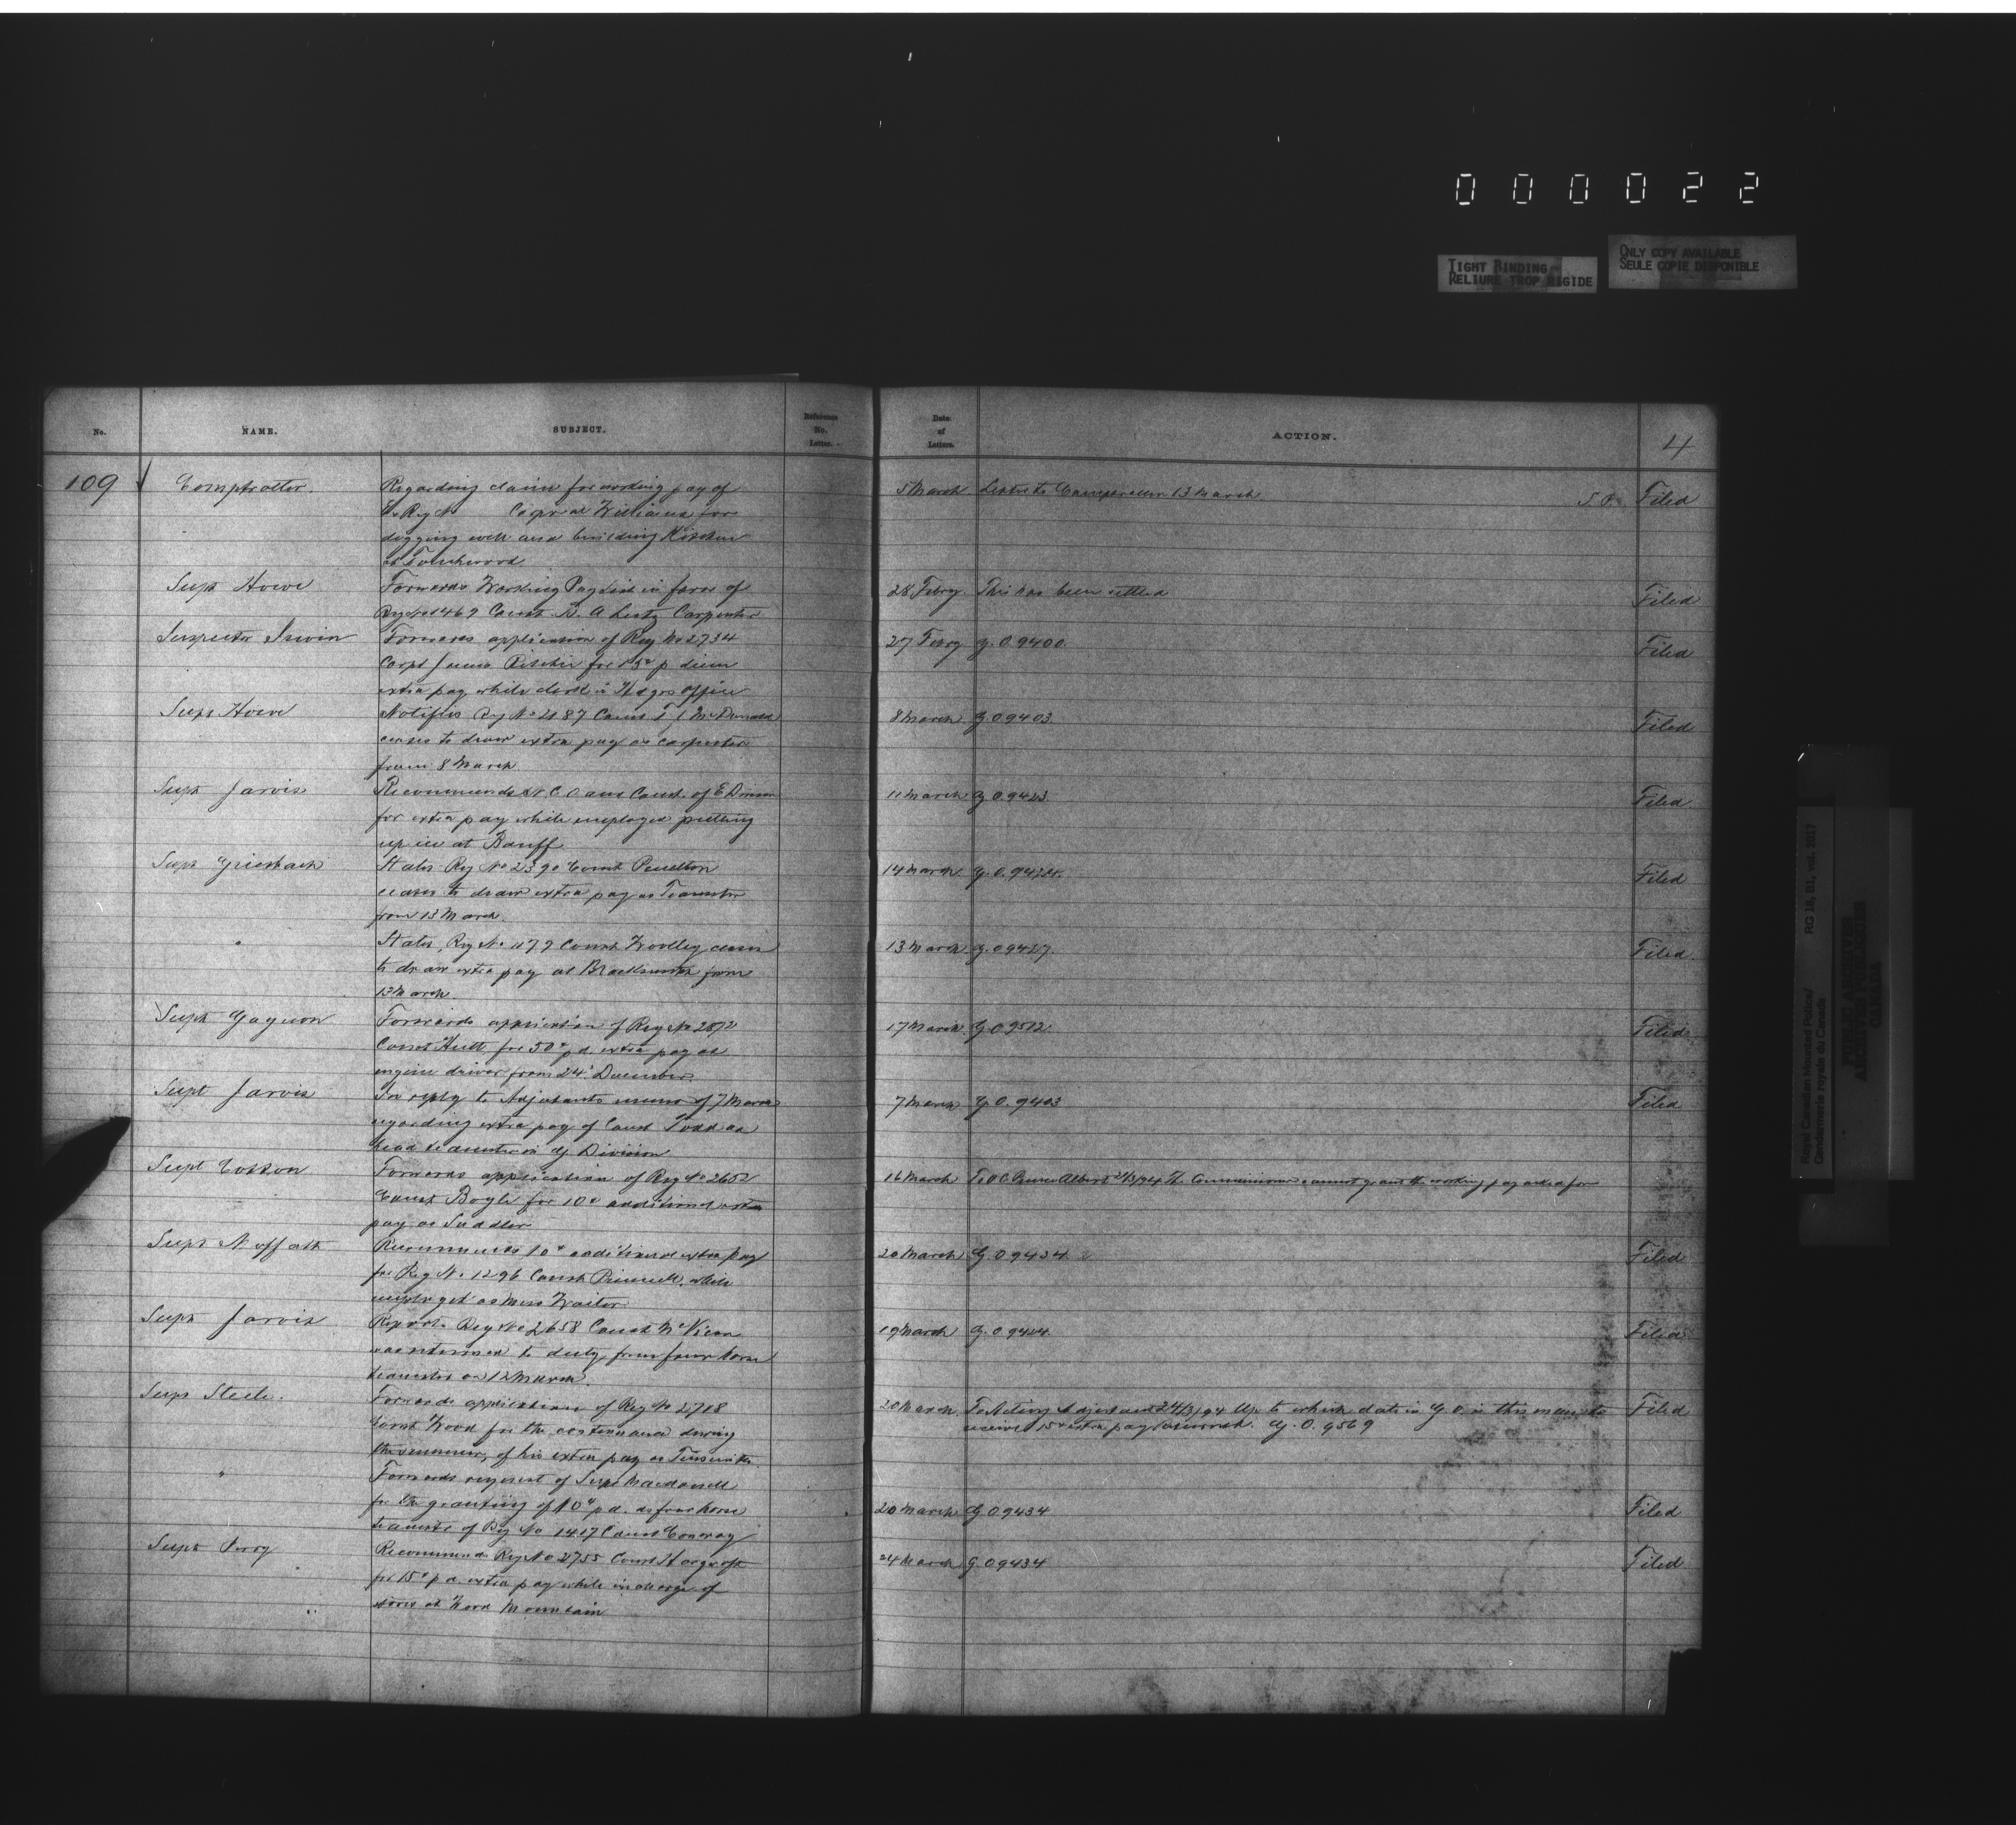 000022
TIGHT BINDING
RELIURE TROP RIGIDE
ONLY COPY AVAILABLE
SEULE COPIE DISPONIBLE
No.
NAME.
SUBJECT.
Reference No. Letter.
Date of Letters.
ACTION.
4
109
Comptroller.
Regarding claim for working pay of
Ex Reg No Corporal Williams for
digging well and building Kitchen
at Touchwood
5 March
Letter to Comptroller 13 March
S.O.
Filed
Supt Howe
Forwards Working Pay List in favor of
Reg No 1469 Const B. A. Lentz Carpenter
28 Febry.
This has been settled
Filed
Inspector Irwin
Forwards application of Reg No 2734
Corpl James Ritchie for 15c p diem
extra pay while clerk in Hdqrs office
27 Febry
G.O. 9400
Filed
Supt Howe
Notifies Reg No 2187 Const McDonald
ceases to draw extra pay as carpenter
from 8 March
8 March
G.O. 9403
Filed
Supt Jarvis
Recommends N.C.O. and Const. of E Divison
for extra pay while employed putting
up ice at Banff
11 March
G.O. 9423
Filed
Supt Griesbach
States Reg No 2390 Const Pendleton
ceases to draw extra pay as Teamster
from 13 March.
14 March
G.O. 9424.
Filed
"
States, Reg No 1179 Const Woolley ceases
to draw extra pay as Blacksmith from
13 March.
13 March
G.O. 9427.
Filed.
Supt Gagnon
Forwards application of Reg No 2872
Const Hett for 50c p.d. extra pay as
engine driver from 24 December
17 March
G.O. 9512
Filed
Supt Jarvis
In reply to Adjutants memo of 7 March
regarding extra pay of Const Todd as
head teamster in G Division
7 March
G.O. 9403
Filed
Supt Cotton
Forwards application of Reg No 2652
Const Bogle for 10c additional extra
pay as Saddler
16 March
To O.C. Prince Albert 21/3/94 The Commissioner cannot grant the working pay asked for
Supt Moffatt
Recommends 10c additional extra pay
for Reg No 1296 Const while
employed as Mess Waiter
20 March
G.O. 9434
Filed
Supt Jarvis
Reports Reg No 2658 Const McVicar
was returned to duty from four horse
teamster on 12 March
19 March
G.O. 9424
Filed
Supt Steele.
Forwards application of Reg No 2718
Const Wood for the continuance during
the summer, of his extra pay as Tinsmith.
20 March
To Acting Adjutant 24/3/94 Up to which date in G.O. is this man to
receive 15c extra pay G.O. 9569
Filed
"
Forwards request of Supt Macdonell
for the granting of 10c p.d. as four horse
teamster of Reg No 1417 Const Conway
20 March
G.O. 9434
Filed
Supt Perry
Recommends Reg No 2755 Const Hargroft
for 15c p.d. extra pay while in charge of
stores at Wood Mountain
24 March
G.O. 9434
Filed
Royal Canadian Mounted Police/
Gendarmerie royale du Canada
RG 18, B1, vol. 2017
PUBLIC ARCHIVES
ARCHIVES PUBLIQUES
CANADA